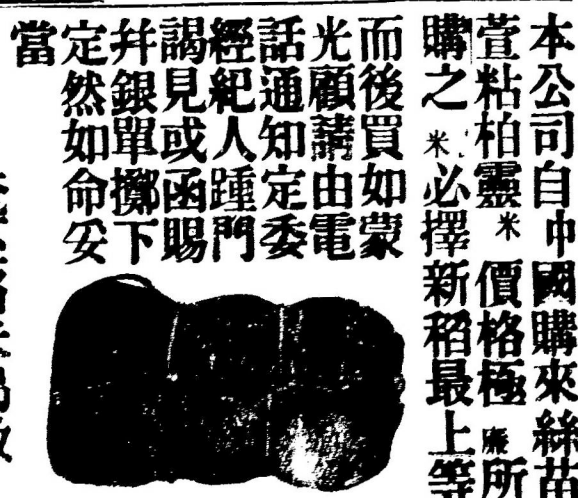 本公司自中國購來絲苗
萱粘柏靈米價格極廉所
購之米必擇新稻最上等
而後買如蒙
光顧請由電
話通知定委
經紀人踵門
謁見或函賜
并銀單擲下
定然如命妥
當